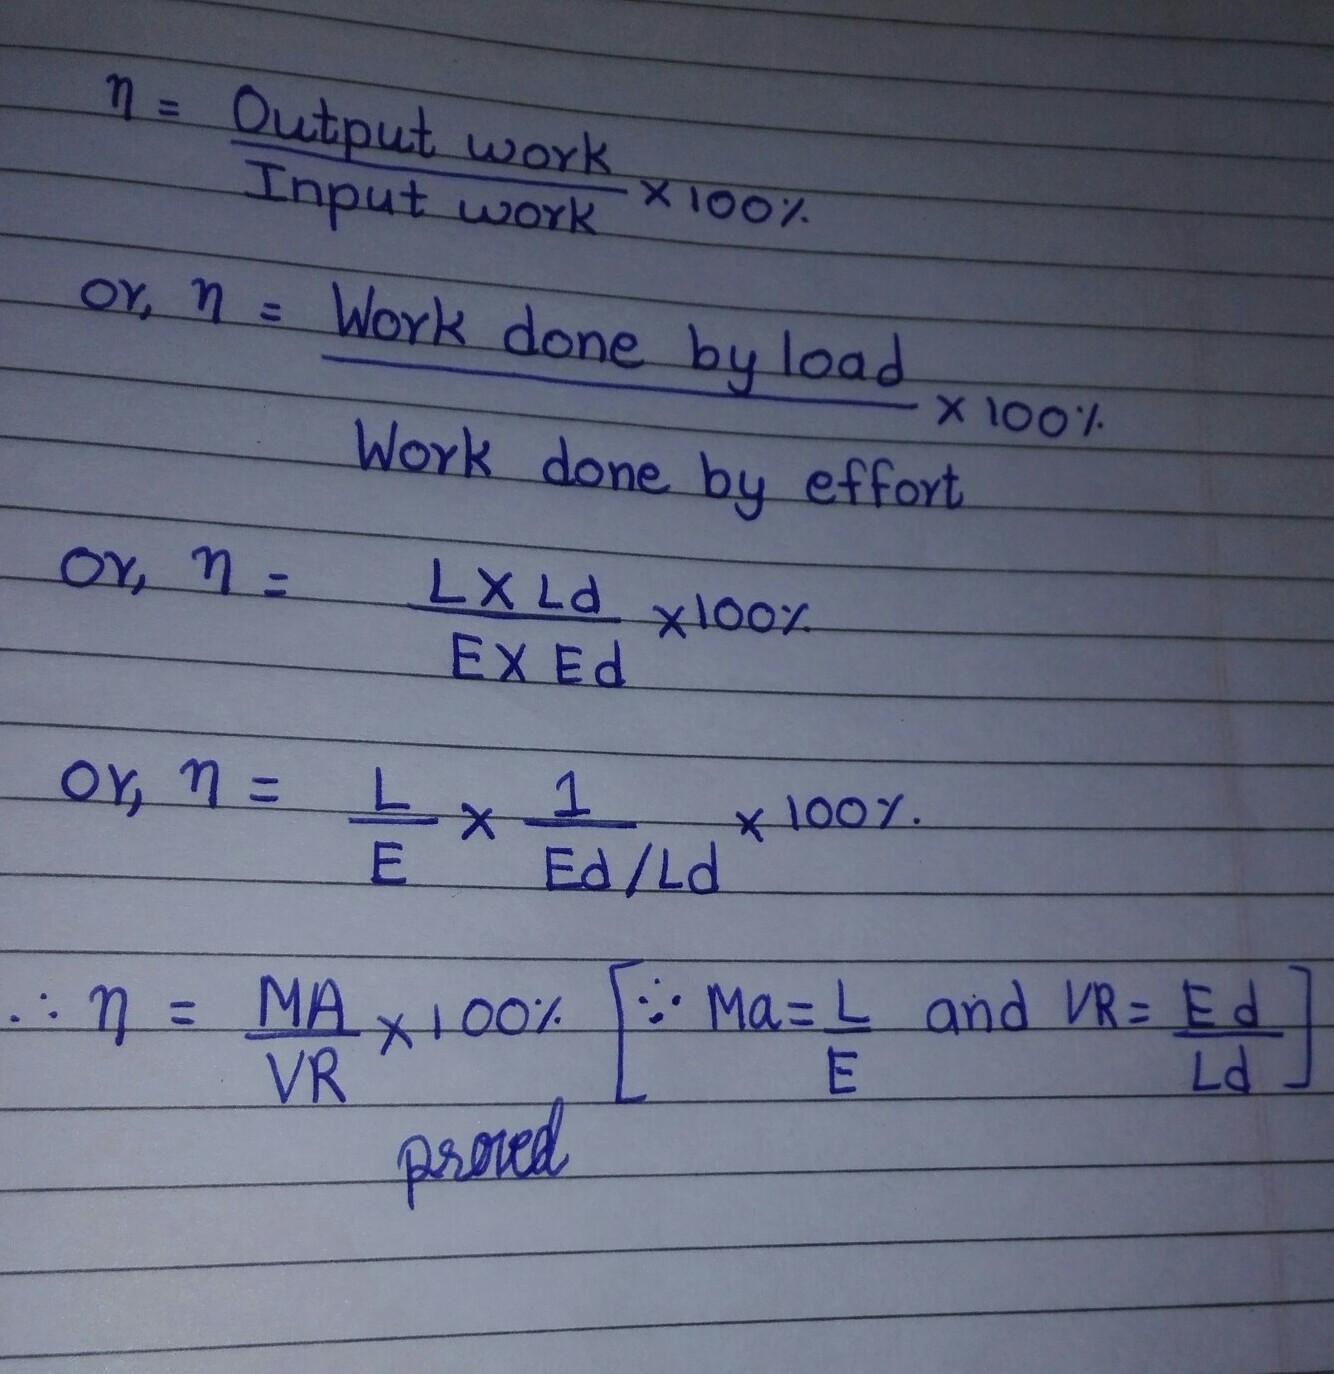 η = Output work / Input work × 100%
or, η = Work done by load / Work done by effort × 100%
or, η = L × Ld / E × Ed × 100%
or, η = L / E × 1 / Ed/Ld × 100%.
∴ η = MA / VR × 100% [∵ Ma = L / E and VR = Ed / Ld]
proved